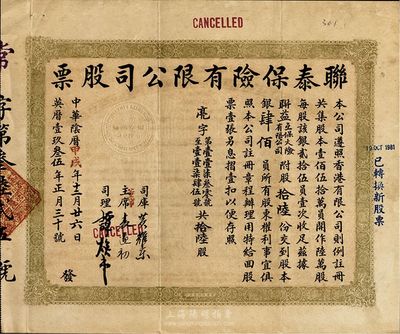 CANCELLED
聯泰保險有限公司股票
本公司遵照香港有限公司則例註冊
共集股本壹佰伍拾萬員開作陸萬股
每股該銀貳拾伍員壹次收足茲據
聯益保火險有限公司附股拾陸份交到股本
銀肆佰員所有股東權利事宜俱
照本公司註冊章程辦理用特給回股
票壹張另息摺壹扣以便存照
共拾陸股
司庫
主席
司理
CANCELLED
中華陰曆甲戌年十二月廿六日
英曆壹玖叁伍年正月三十號
發
常字第叁陸貳伍號
19 OCT 1981
已轉換新股票